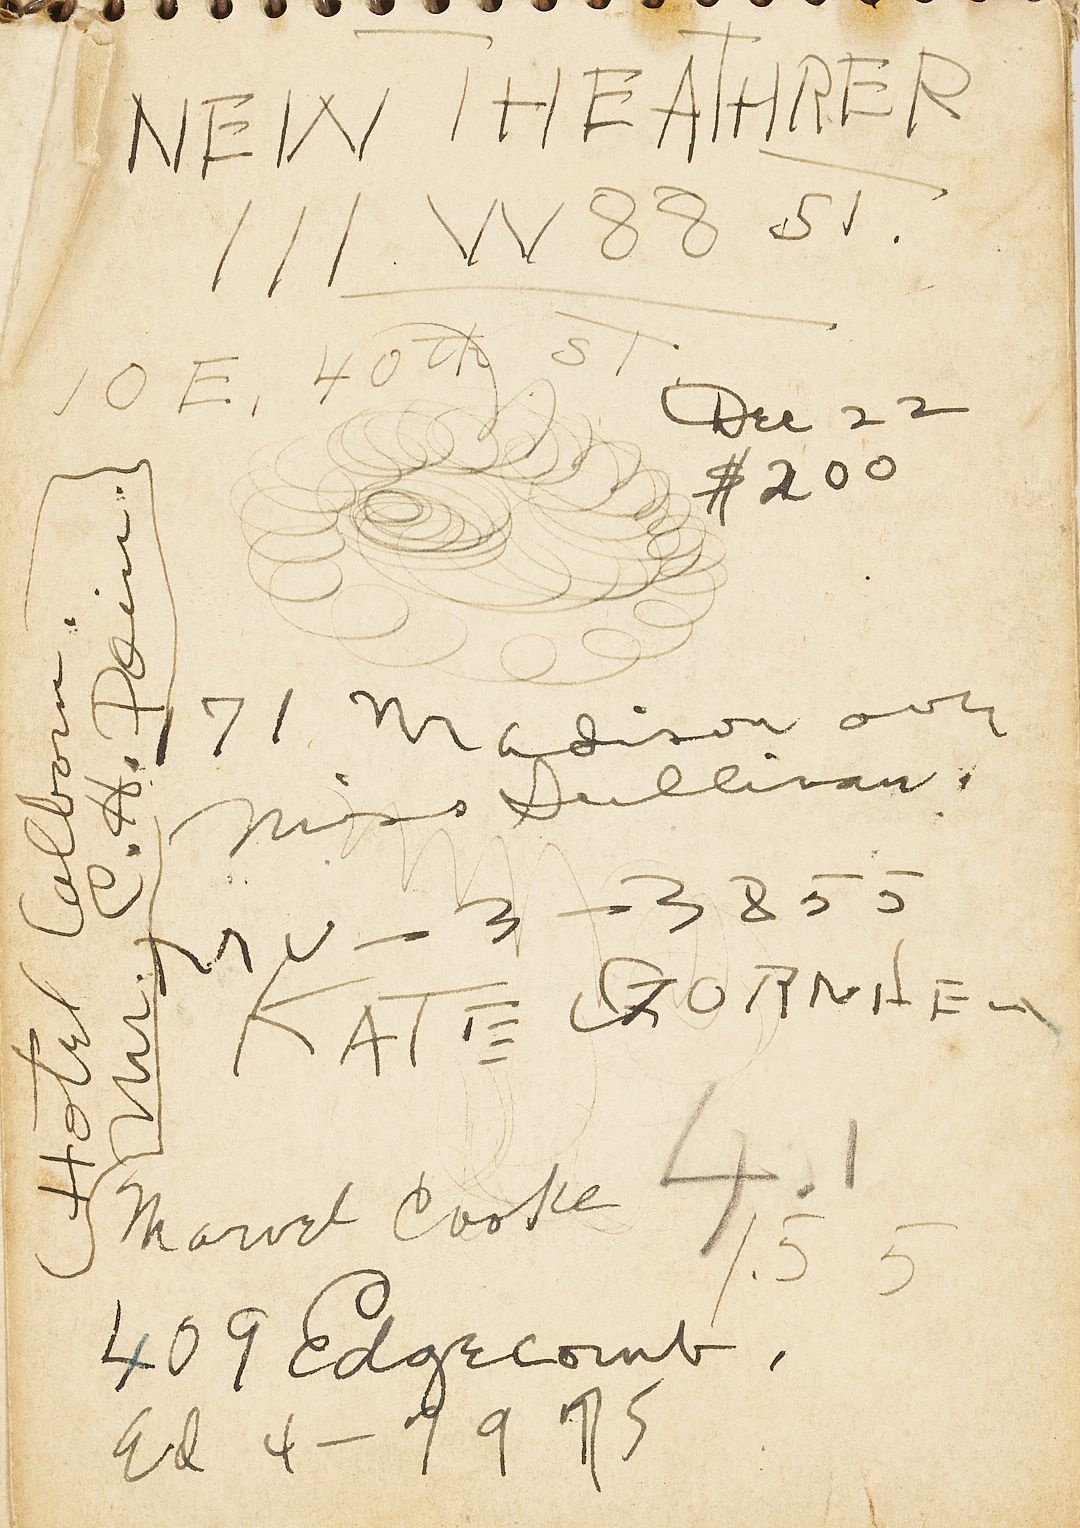 NEW THEATHRER
111 W 88 ST.
10 E. 40th ST.
Dec 22
$200
171 Madison ave
Miss Sullivan.
MU-3-3855
KATE
Marvel Cooke
4.1
1.55
409 Edgecomb.
Ed 4-7975
Hotel Colborn.
Mr. C.H.